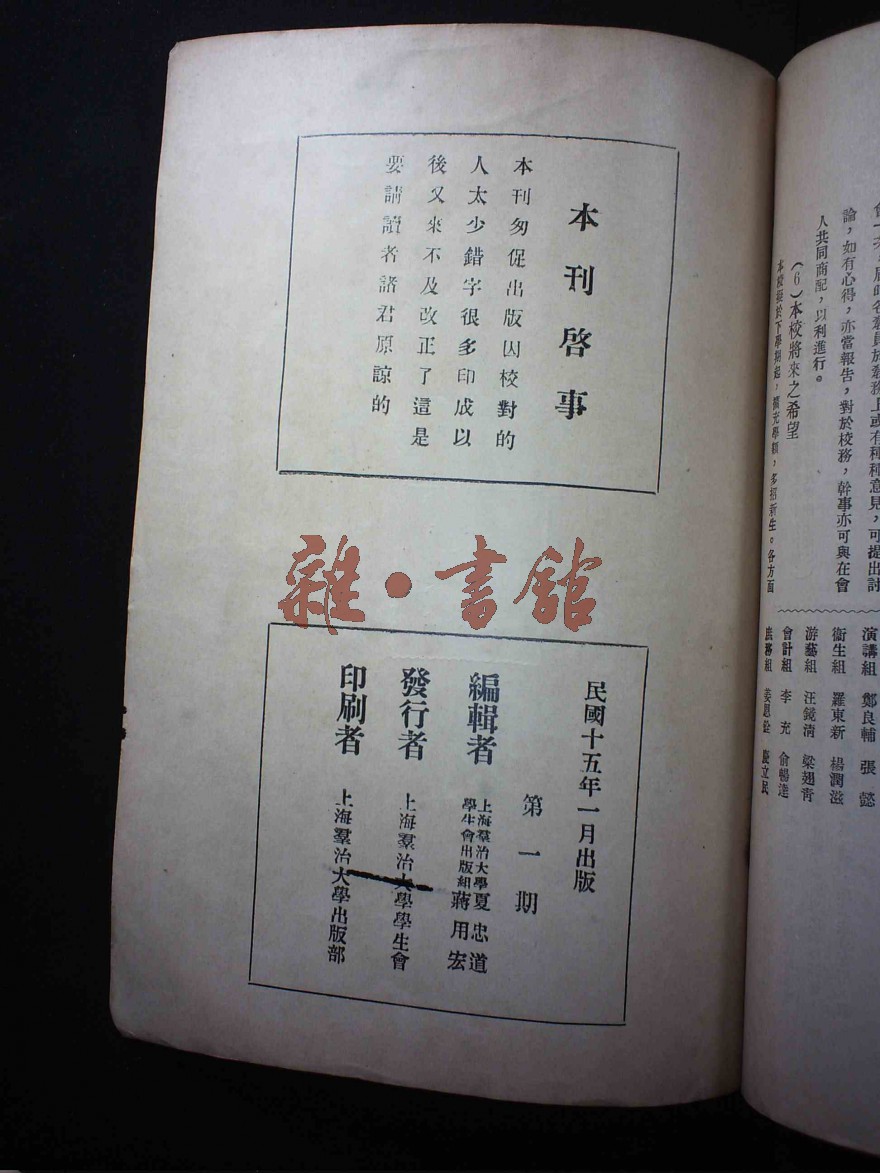 論，如有心得，亦當報告，對於校務，幹事亦可與在會
人共同商配，以利進行。
（6）本校將來之希望
演講組　鄭良輔　張　懿
衞生組　羅東新　楊潤滋
游藝組　汪錢淸　梁翅靑
會計組　李　充　俞暢達
本刊啓事
本刊匆促出版因校對的
人太少錯字很多印成以
後又來不及改正了這是
要請讀者諸君原諒的
雜・書舘
民國十五年一月出版
第一期
編輯者　上海羣治大學學生會出版組　夏忠道　蔣用宏
發行者　上海羣治大學學生會
印刷者　上海羣治大學出版部